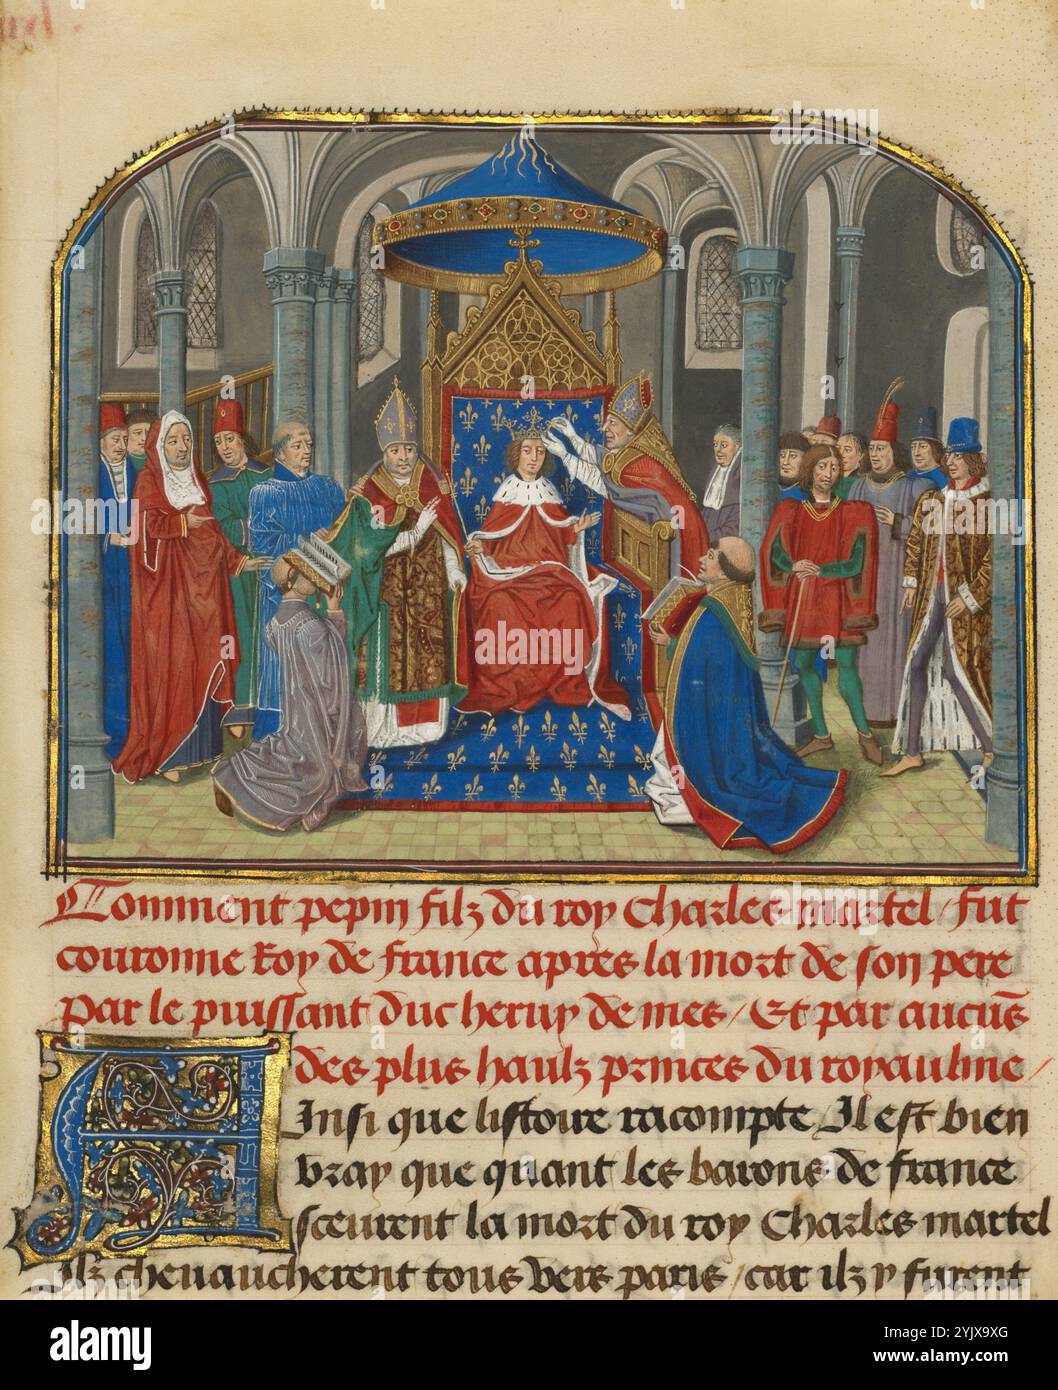 Comment pepin filz du roy Charles martel / fut
couronne Roy de france apres la mort de son pere
Par le puissant duc heruy de mes / Et par aucũs
des plus haulz princes du royaulme /
Ainsi que listoire racompte / Il est bien
vray que quant les barons de france
sceurent la mort du roy Charles martel
Ilz cheuaucherent tous vers paris / car ilz y furent
alamy
Image ID: 2YJX9XG
www.alamy.com